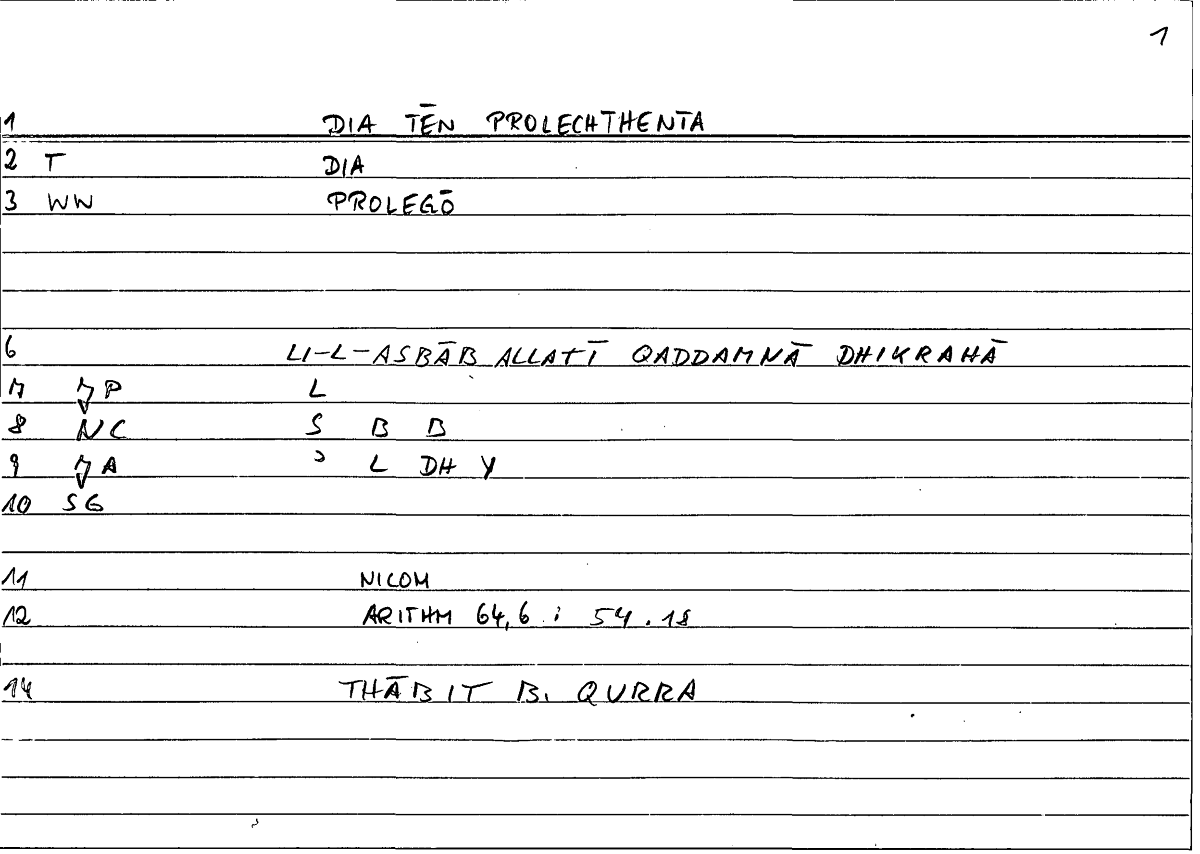 1
1 DIA TĒN PROLECHTHENTA
2 T DIA
3 WW PROLEGŌ
6 LI-L-ASBĀB ALLATĪ QADDAMNĀ DHIKRAHĀ
7 P L
8 NC S B B
9 A ʾ L DH Y
10 SG
11 NICOM
12 ARITHM 64,6 ; 54.18
14 THĀBIT B. QURRA